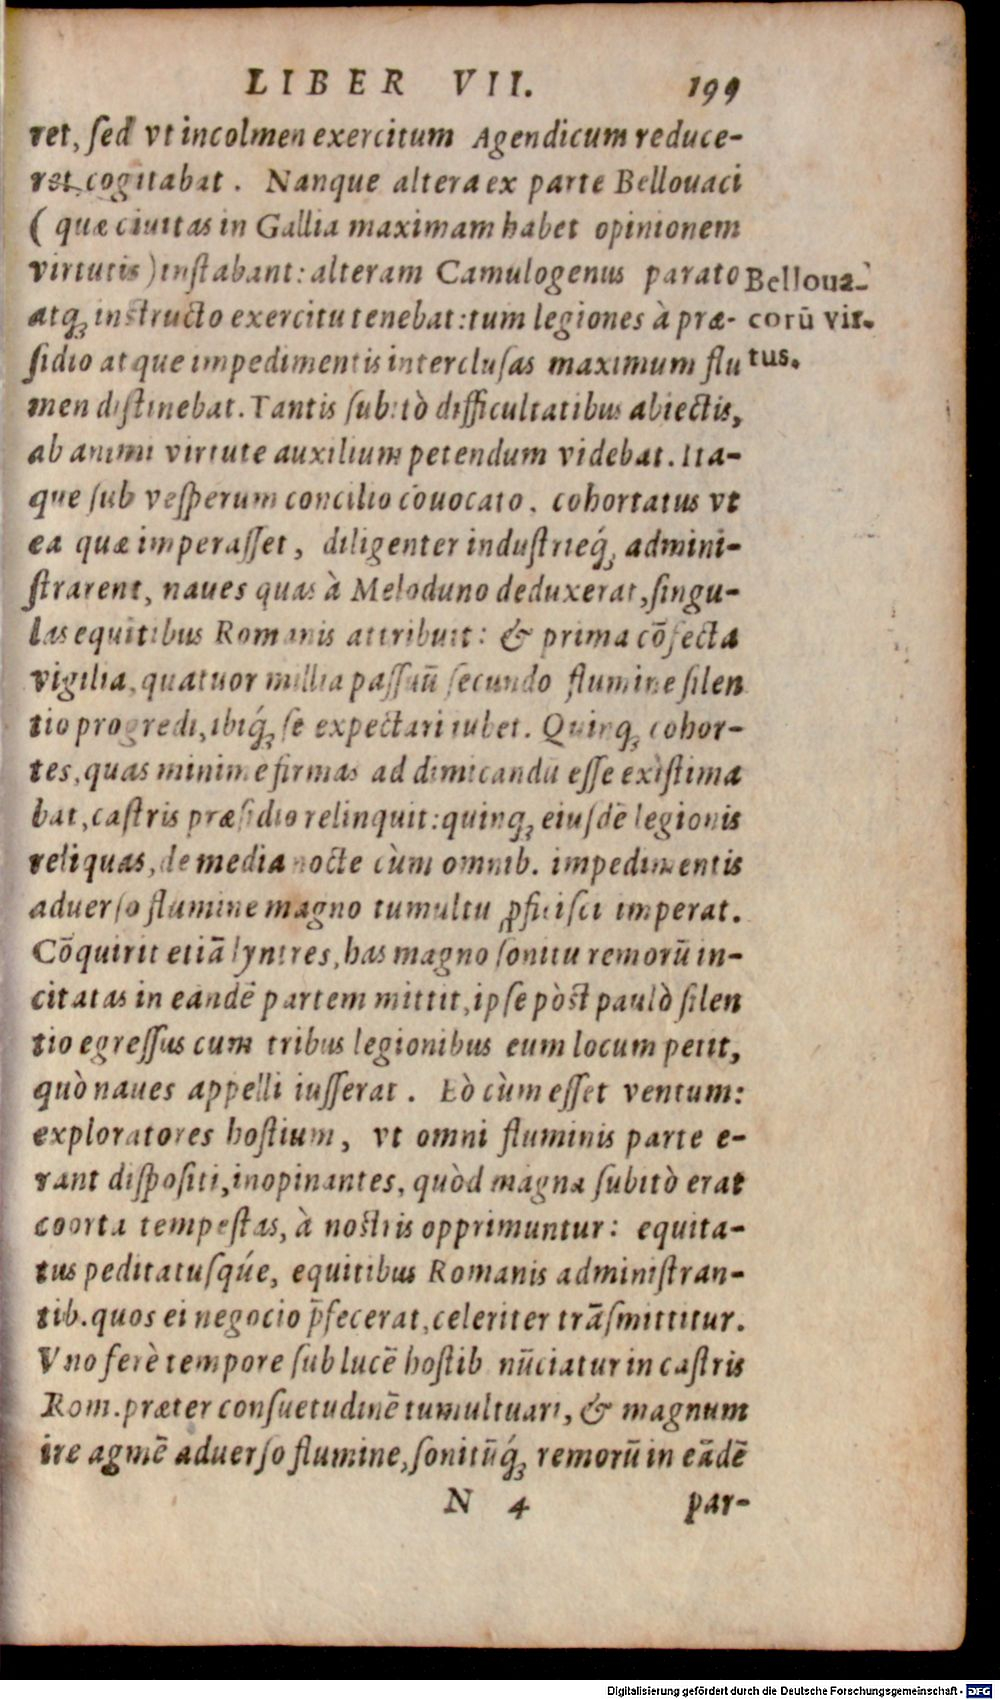 LIBER VII. 199
ret, sed vt incolmen exercitum Agendicum reduce-
ret cogitabat. Nanque altera ex parte Bellouaci
( quæ ciuitas in Gallia maximam habet opinionem
virtutis ) instabant: alteram Camulogenus parato
atq; instructo exercitu tenebat: tum legiones à præ-
sidio atque impedimentis interclusas maximum flu
men distinebat. Tantis subitò difficultatibus abiectis,
ab animi virtute auxilium petendum videbat. Ita-
que sub vesperum concilio cōuocato, cohortatus vt
ea quæ imperasset, diligenter industrieq́; admini-
strarent, naues quas à Meloduno deduxerat, singu-
las equitibus Romanis attribuit: & prima cōfecta
vigilia, quatuor millia passuū secundo flumine silen
tio progredi, ibiq́; se expectari iubet. Quinq; cohor-
tes, quas minime firmas ad dimicandū esse existima
bat, castris præsidio relinquit: quinq; eiusdē legionis
reliquas, de media nocte cùm omnib. impedimentis
aduerso flumine magno tumultu ꝓficisci imperat.
Cōquirit etiā lyntres, has magno sonitu remorū in-
citatas in eandē partem mittit, ipse pòst paulò silen
tio egressus cum tribus legionibus eum locum petit,
quò naues appelli iusserat. Eò cùm esset ventum:
exploratores hostium, vt omni fluminis parte e-
rant dispositi, inopinantes, quòd magna subitò erat
coorta tempestas, à nostris opprimuntur: equita-
tus peditatusqúe, equitibus Romanis administran-
tib. quos ei negocio p̄fecerat, celeriter trāsmittitur.
Vno ferè tempore sub lucē hostib. nūciatur in castris
Rom. præter consuetudinē tumultuari, & magnum
ire agmē aduerso flumine, sonitūq́; remorū in eādē
N 4 par-
Belloua-
corū vir-
tus.
Digitalisierung gefördert durch die Deutsche Forschungsgemeinschaft - DFG